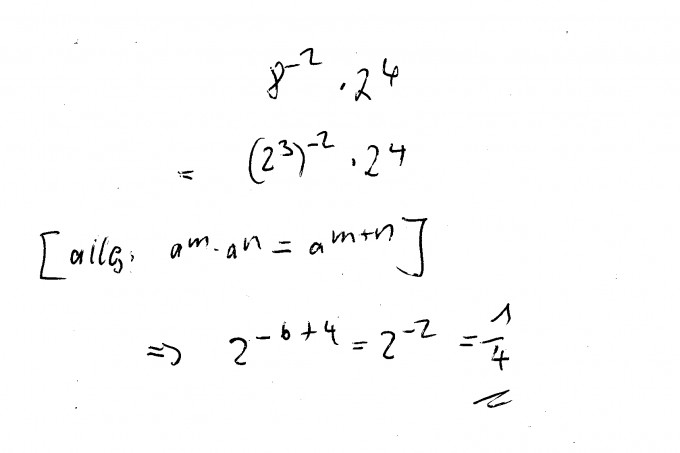 8⁻² · 2⁴
= (2³)⁻² · 2⁴
[allg. aᵐ · aⁿ = aᵐ⁺ⁿ]
=> 2⁻⁶⁺⁴ = 2⁻² = 1/4